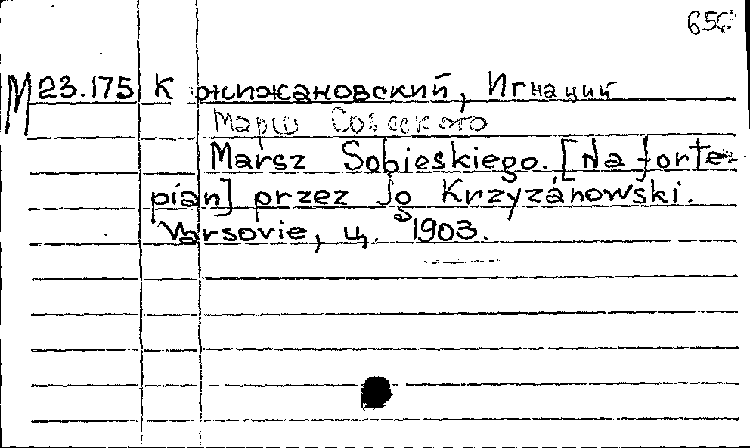 650
М 23.175 Кржижановский, Игнаций
Марш Собеского
Marsz Sobieskiego. [Na forte-
pian] przez Jg Krzyzánowski.
Varsovie, ц. 1903.